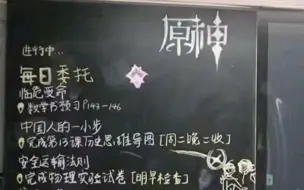 原神
进行中..
每日委托
临危受命
数学书预习P143-146
中国人的一小步
完成第13课历史思维导图[周二晚二收]
安全运输法则
完成物理实验试卷[明早检查]